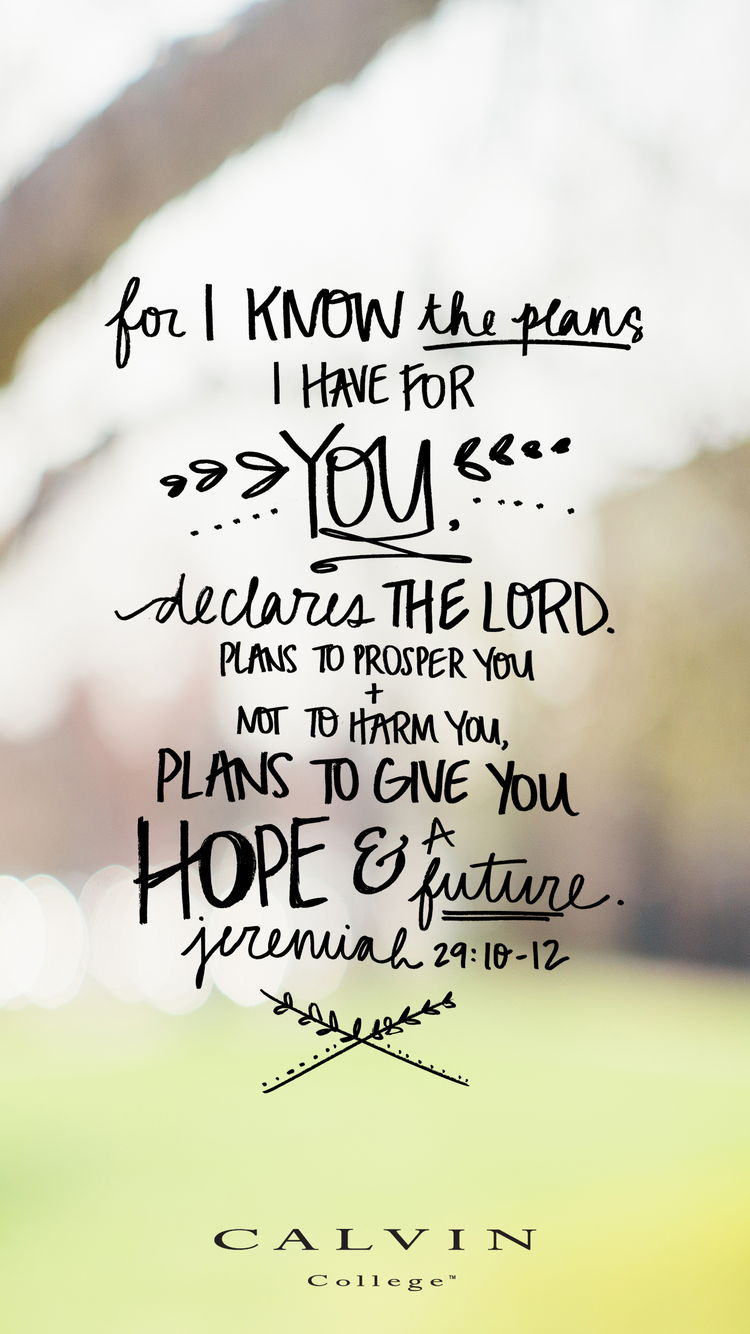 for I KNOW the plans
I HAVE FOR
YOU,
declares THE LORD.
PLANS TO PROSPER YOU
+
NOT TO HARM YOU,
PLANS TO GIVE YOU
HOPE & A future.
jeremiah 29:10-12
CALVIN
College™